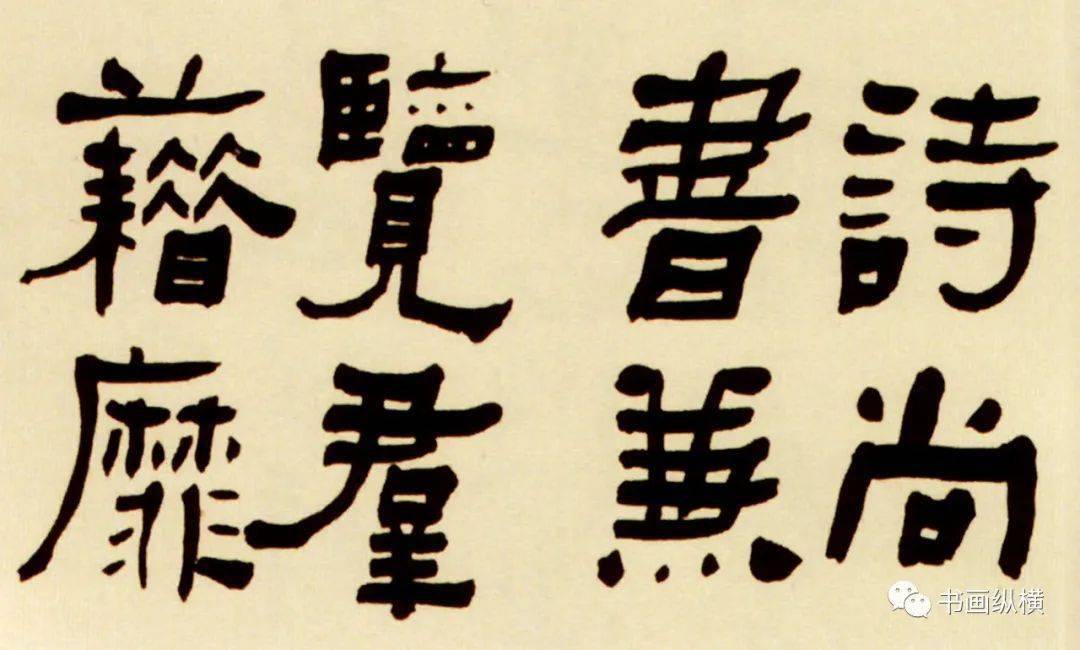 詩尚
書兼
覽羣
藉靡
书画纵横